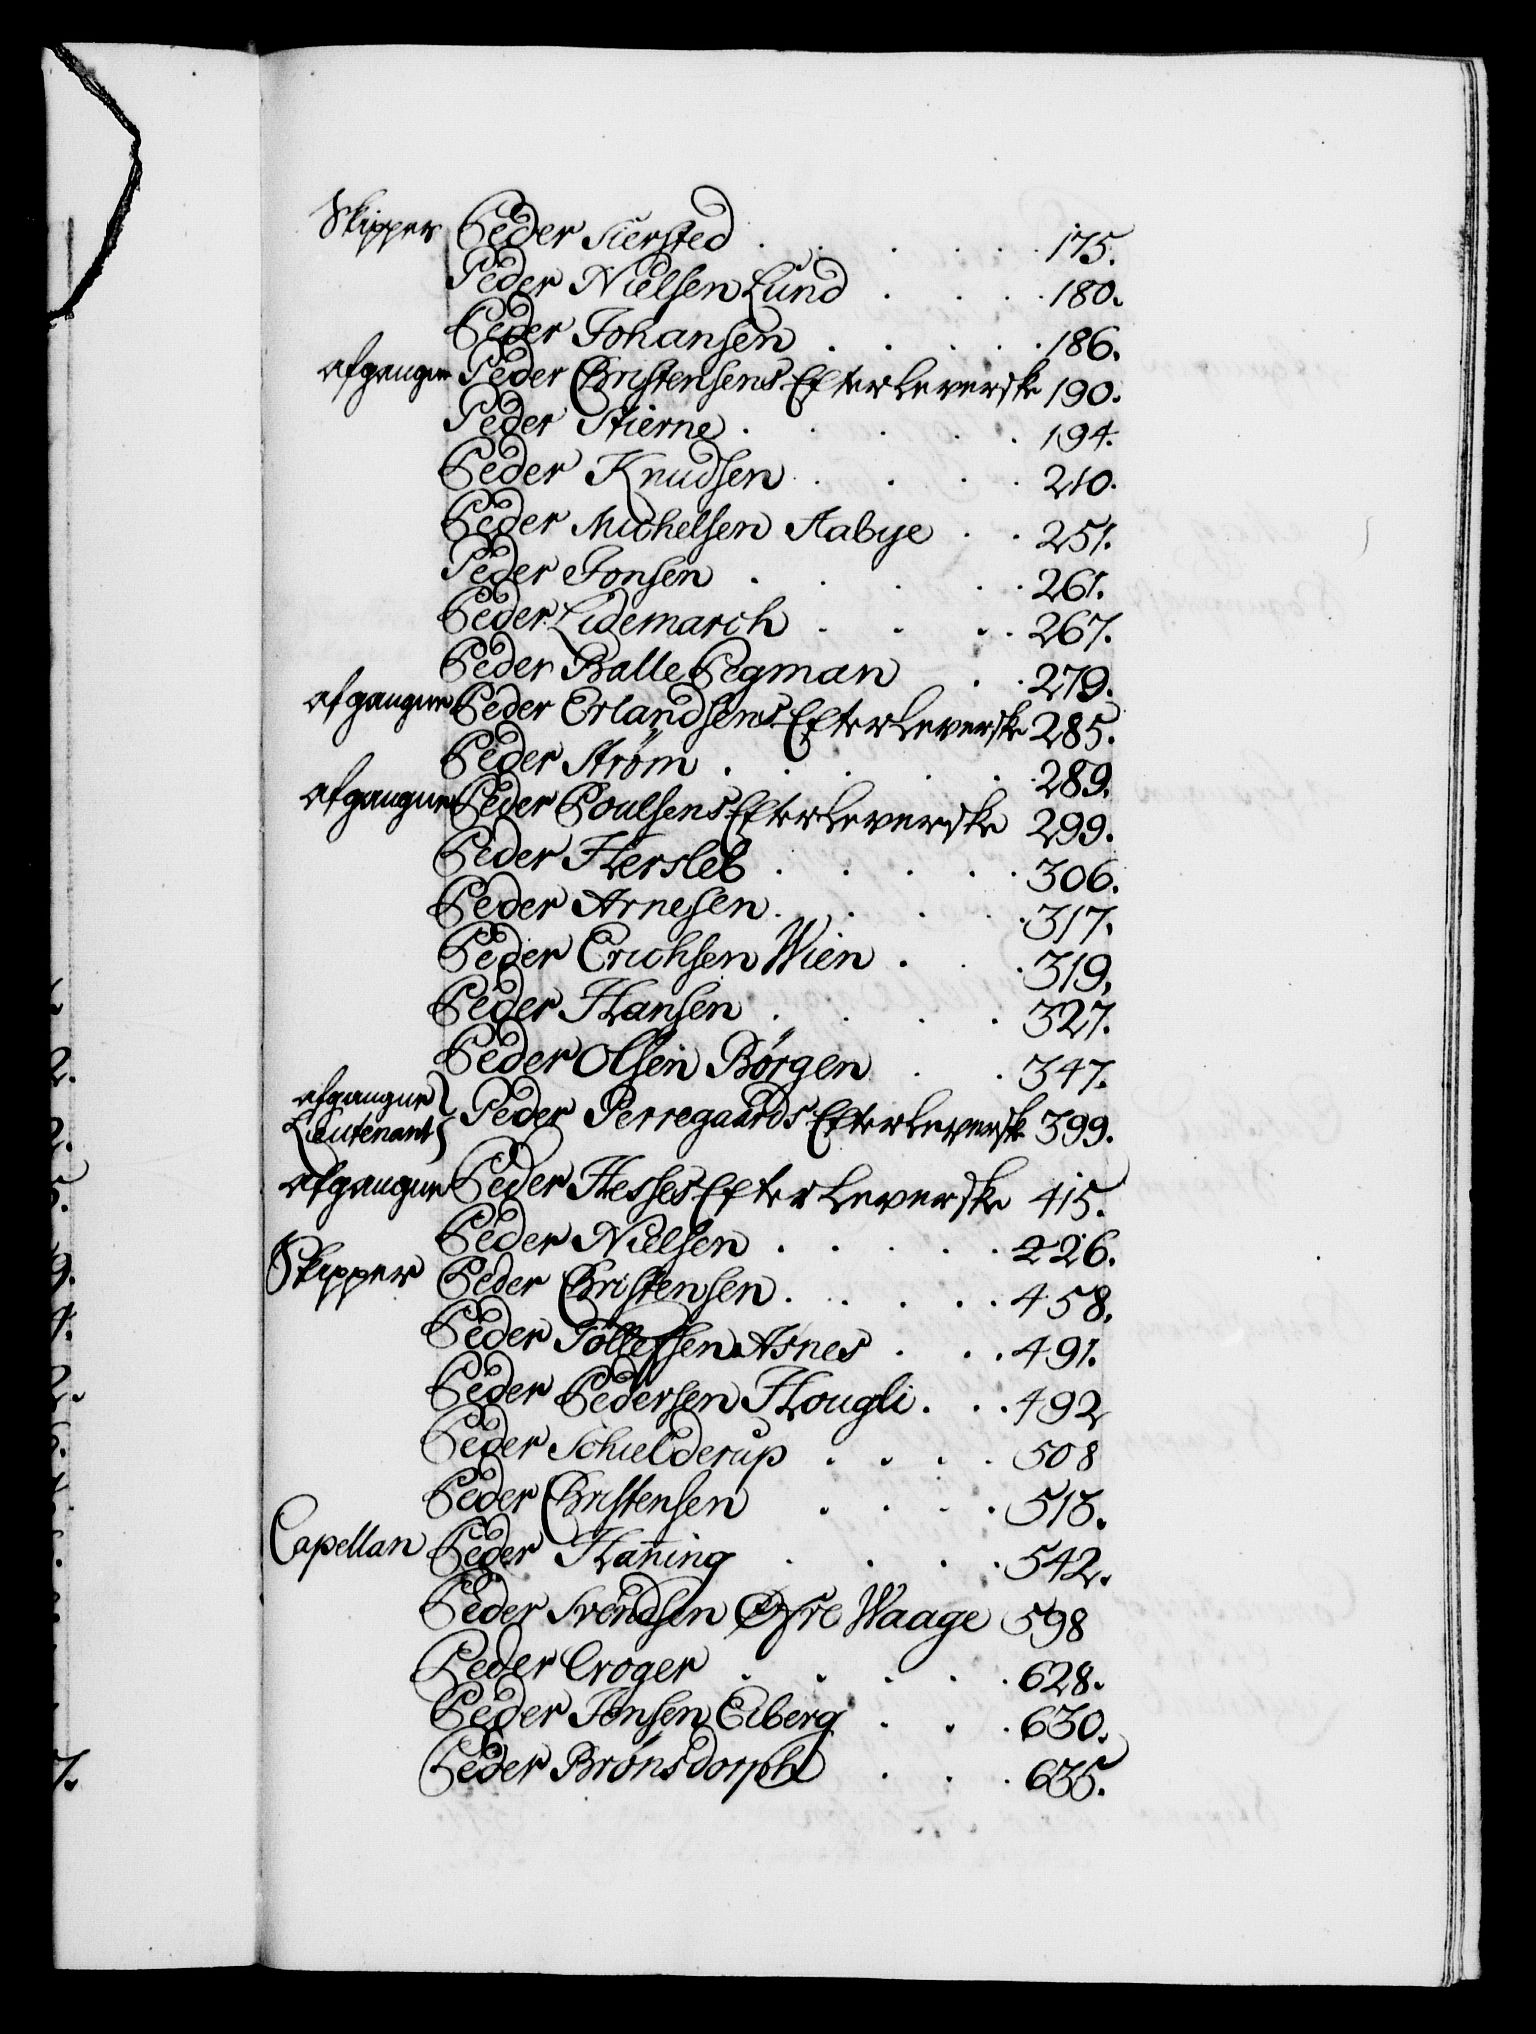 Skipper Peder Siersted . . . . . 175.
Peder Nielsen Lund . . . 180.
Peder Johansen . . . . . 186.
afgangne Peder Christensens Efterleverske 190.
Peder Stierne . . . . . 194.
Peder Knudsen . . . . 210.
Peder Michelsen Aabye . . 251.
Peder Jonsen . . . . . 261.
Peder Lidemarch . . . . 267.
Peder Balle Pegman . . 279.
afgangne Peder Erlandsens Efterleverske 285.
Peder Strøm . . . . . 289.
afgangne Peder Poulsens Efterleverske 299.
Peder Hersleb . . . . . 306.
Peder Arnesen . . . . 317.
Peder Erichsen Wien . . . 319.
Peder Hansen . . . . 327.
Peder Olsen Børgen . . 347.
afgangne
Lieutenant } Peder Perregaards Efterleversk 399.
afgangne Peder Hesses Efterleverske 415.
Peder Nielsen . . . . . 426.
Skipper Peder Christensen . . . . . 458.
Peder Tollefsen Asnes . . . 491.
Peder Pedersen Hougli . . . 492
Peder Schielderup . . . . 508
Peder Christensen . . . . 518.
Capellan Peder Haning . . . . 542.
Peder Svendsen Øfre Waage 598
Peder Croger . . . . . 628.
Peder Jonsen Eiberg . . . 630.
Peder Brønsdorph . . . 635.